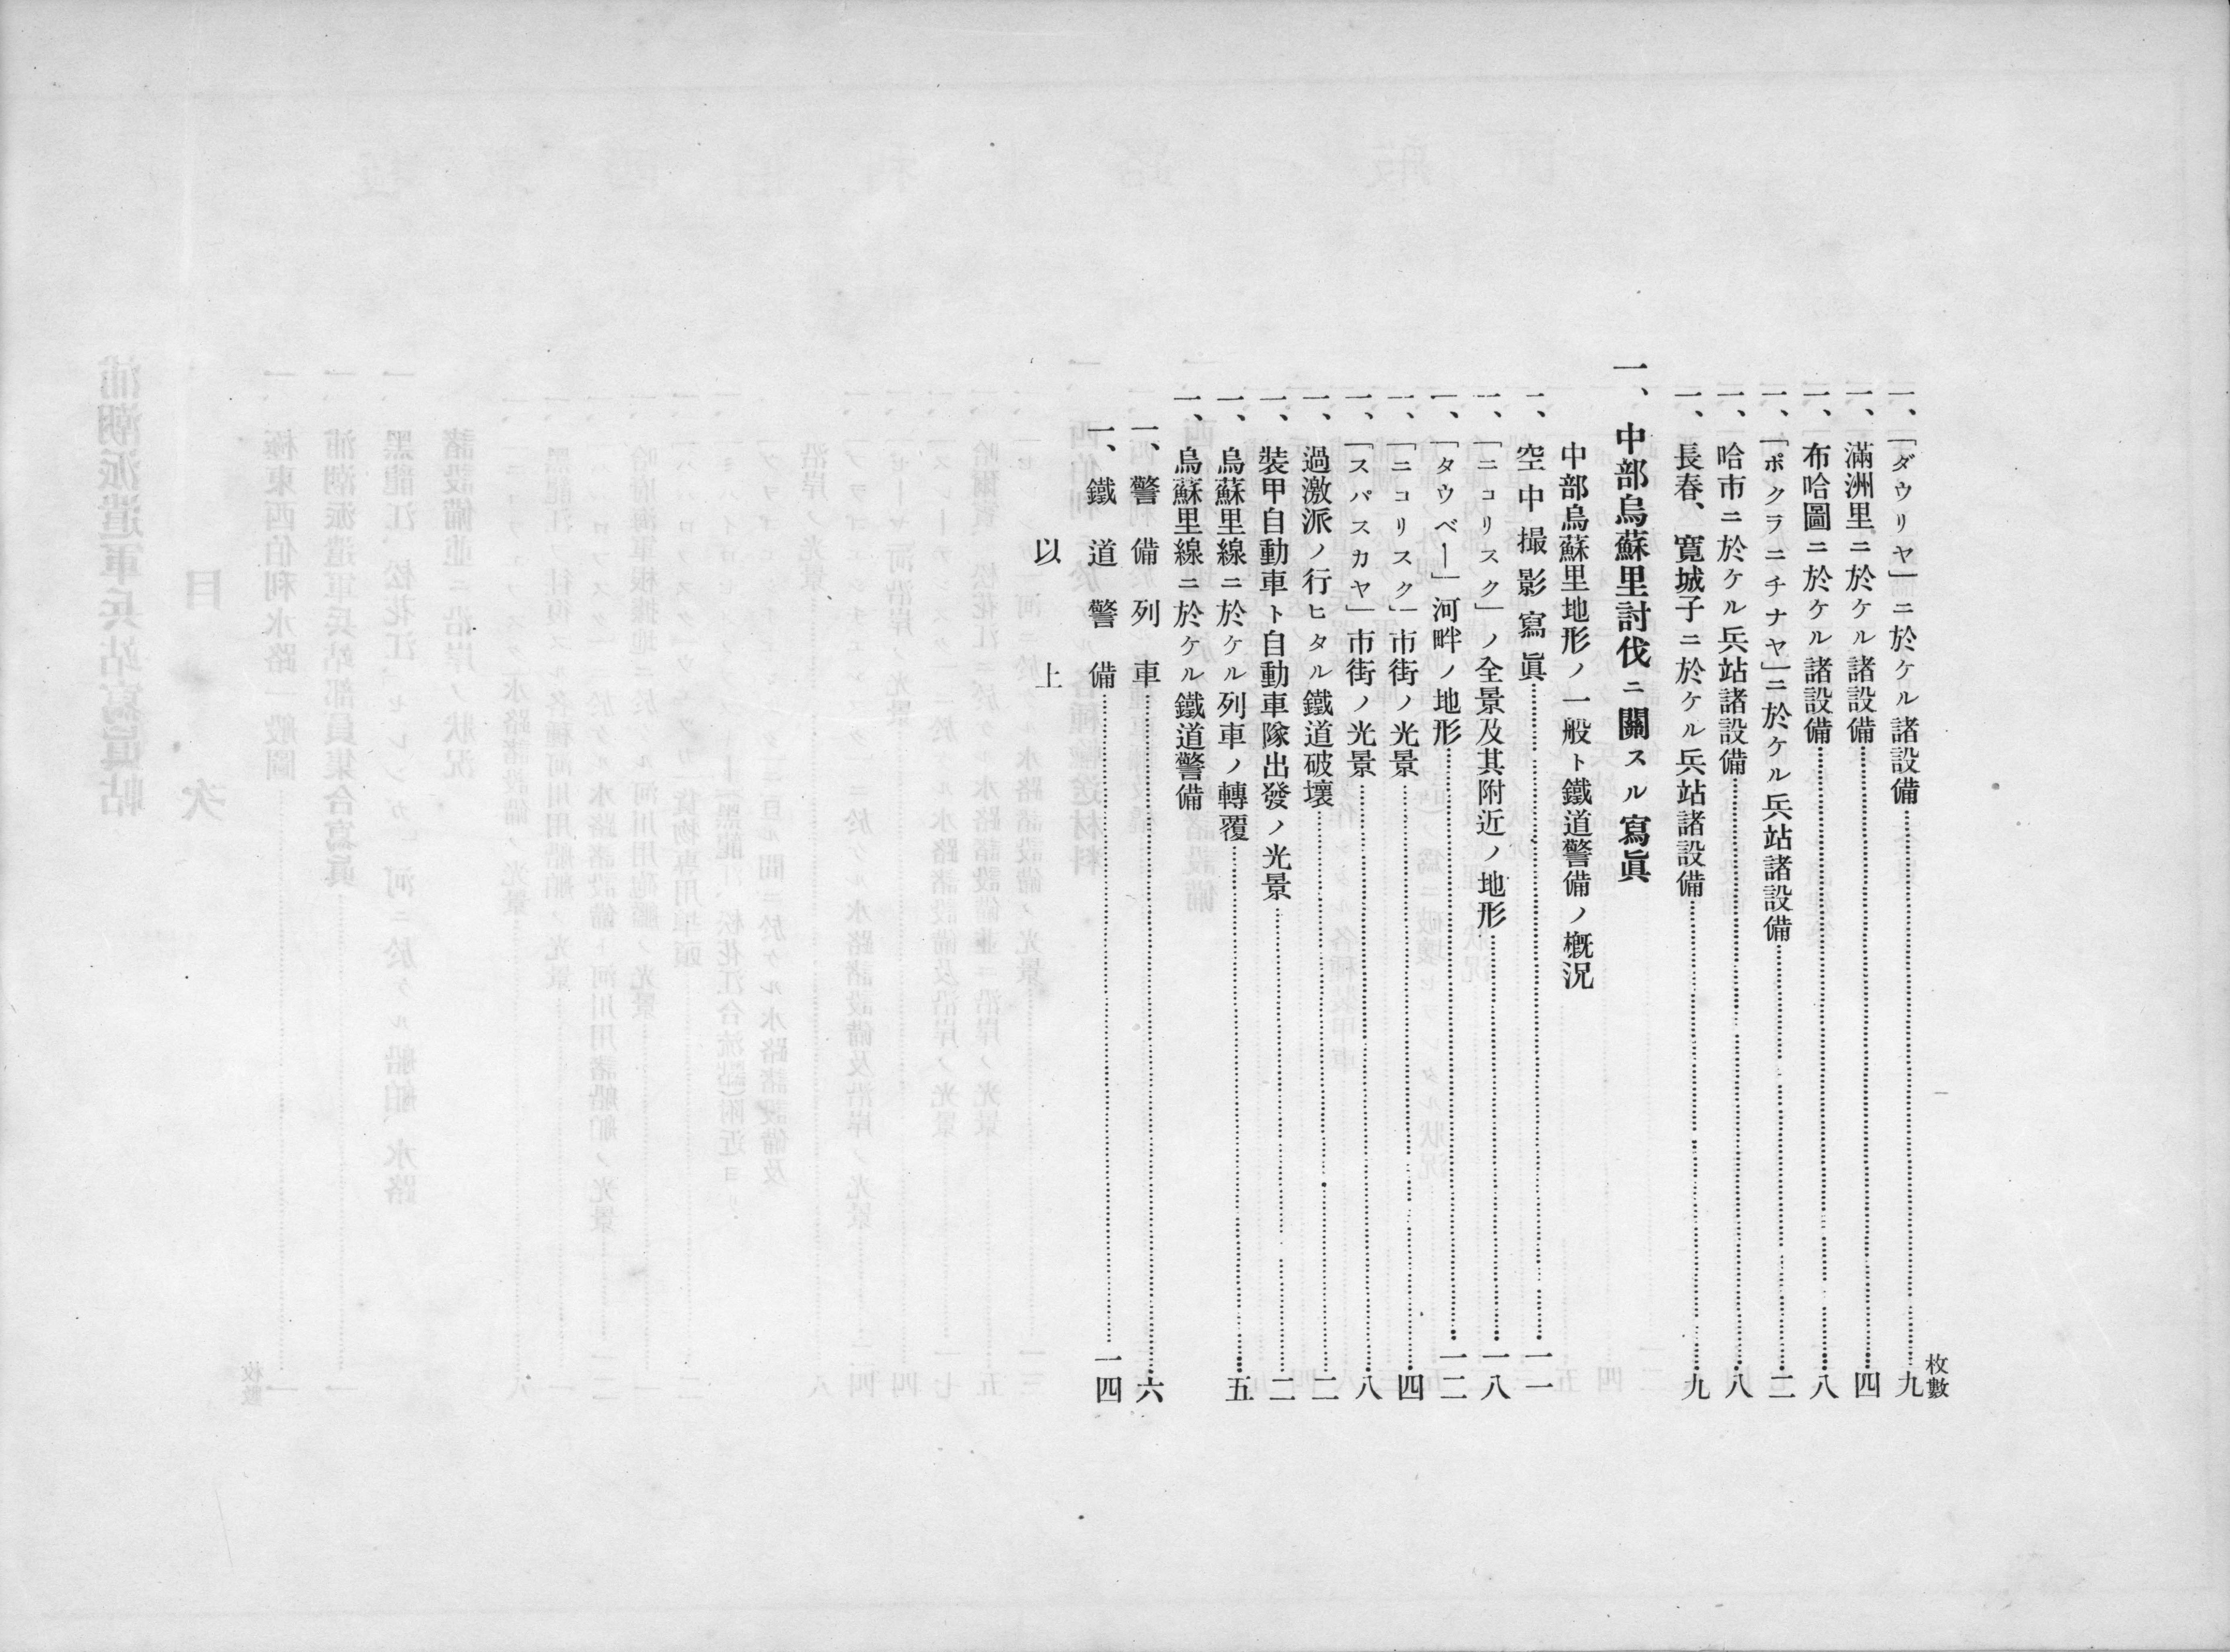 枚數
一、「ダウリヤ」ニ於ケル諸設備………九
一、滿洲里ニ於ケル諸設備………四
一、布哈圖ニ於ケル諸設備………八
一、「ポクラニチナヤ」ニ於ケル兵站諸設備………二
一、哈市ニ於ケル兵站諸設備………八
一、長春、寛城子ニ於ケル兵站諸設備………九
一、中部烏蘇里討伐ニ關スル寫眞
中部烏蘇里地形ノ一般ト鐵道警備ノ槪況
一、空中撮影寫眞………一一
一、「ニコリスク」ノ全景及其附近ノ地形………一八
一、「タウベー」河畔ノ地形………一二
一、「ニコリスク」市街ノ光景………四
一、「スパスカヤ」市街ノ光景………八
一、過激派ノ行ヒタル鐵道破壞………二
一、裝甲自動車ト自動車隊出發ノ光景………二
一、烏蘇里線ニ於ケル列車ノ轉覆………五
一、烏蘇里線ニ於ケル鐵道警備
一、警備列車………六
一、鐵道警備………一四
以上